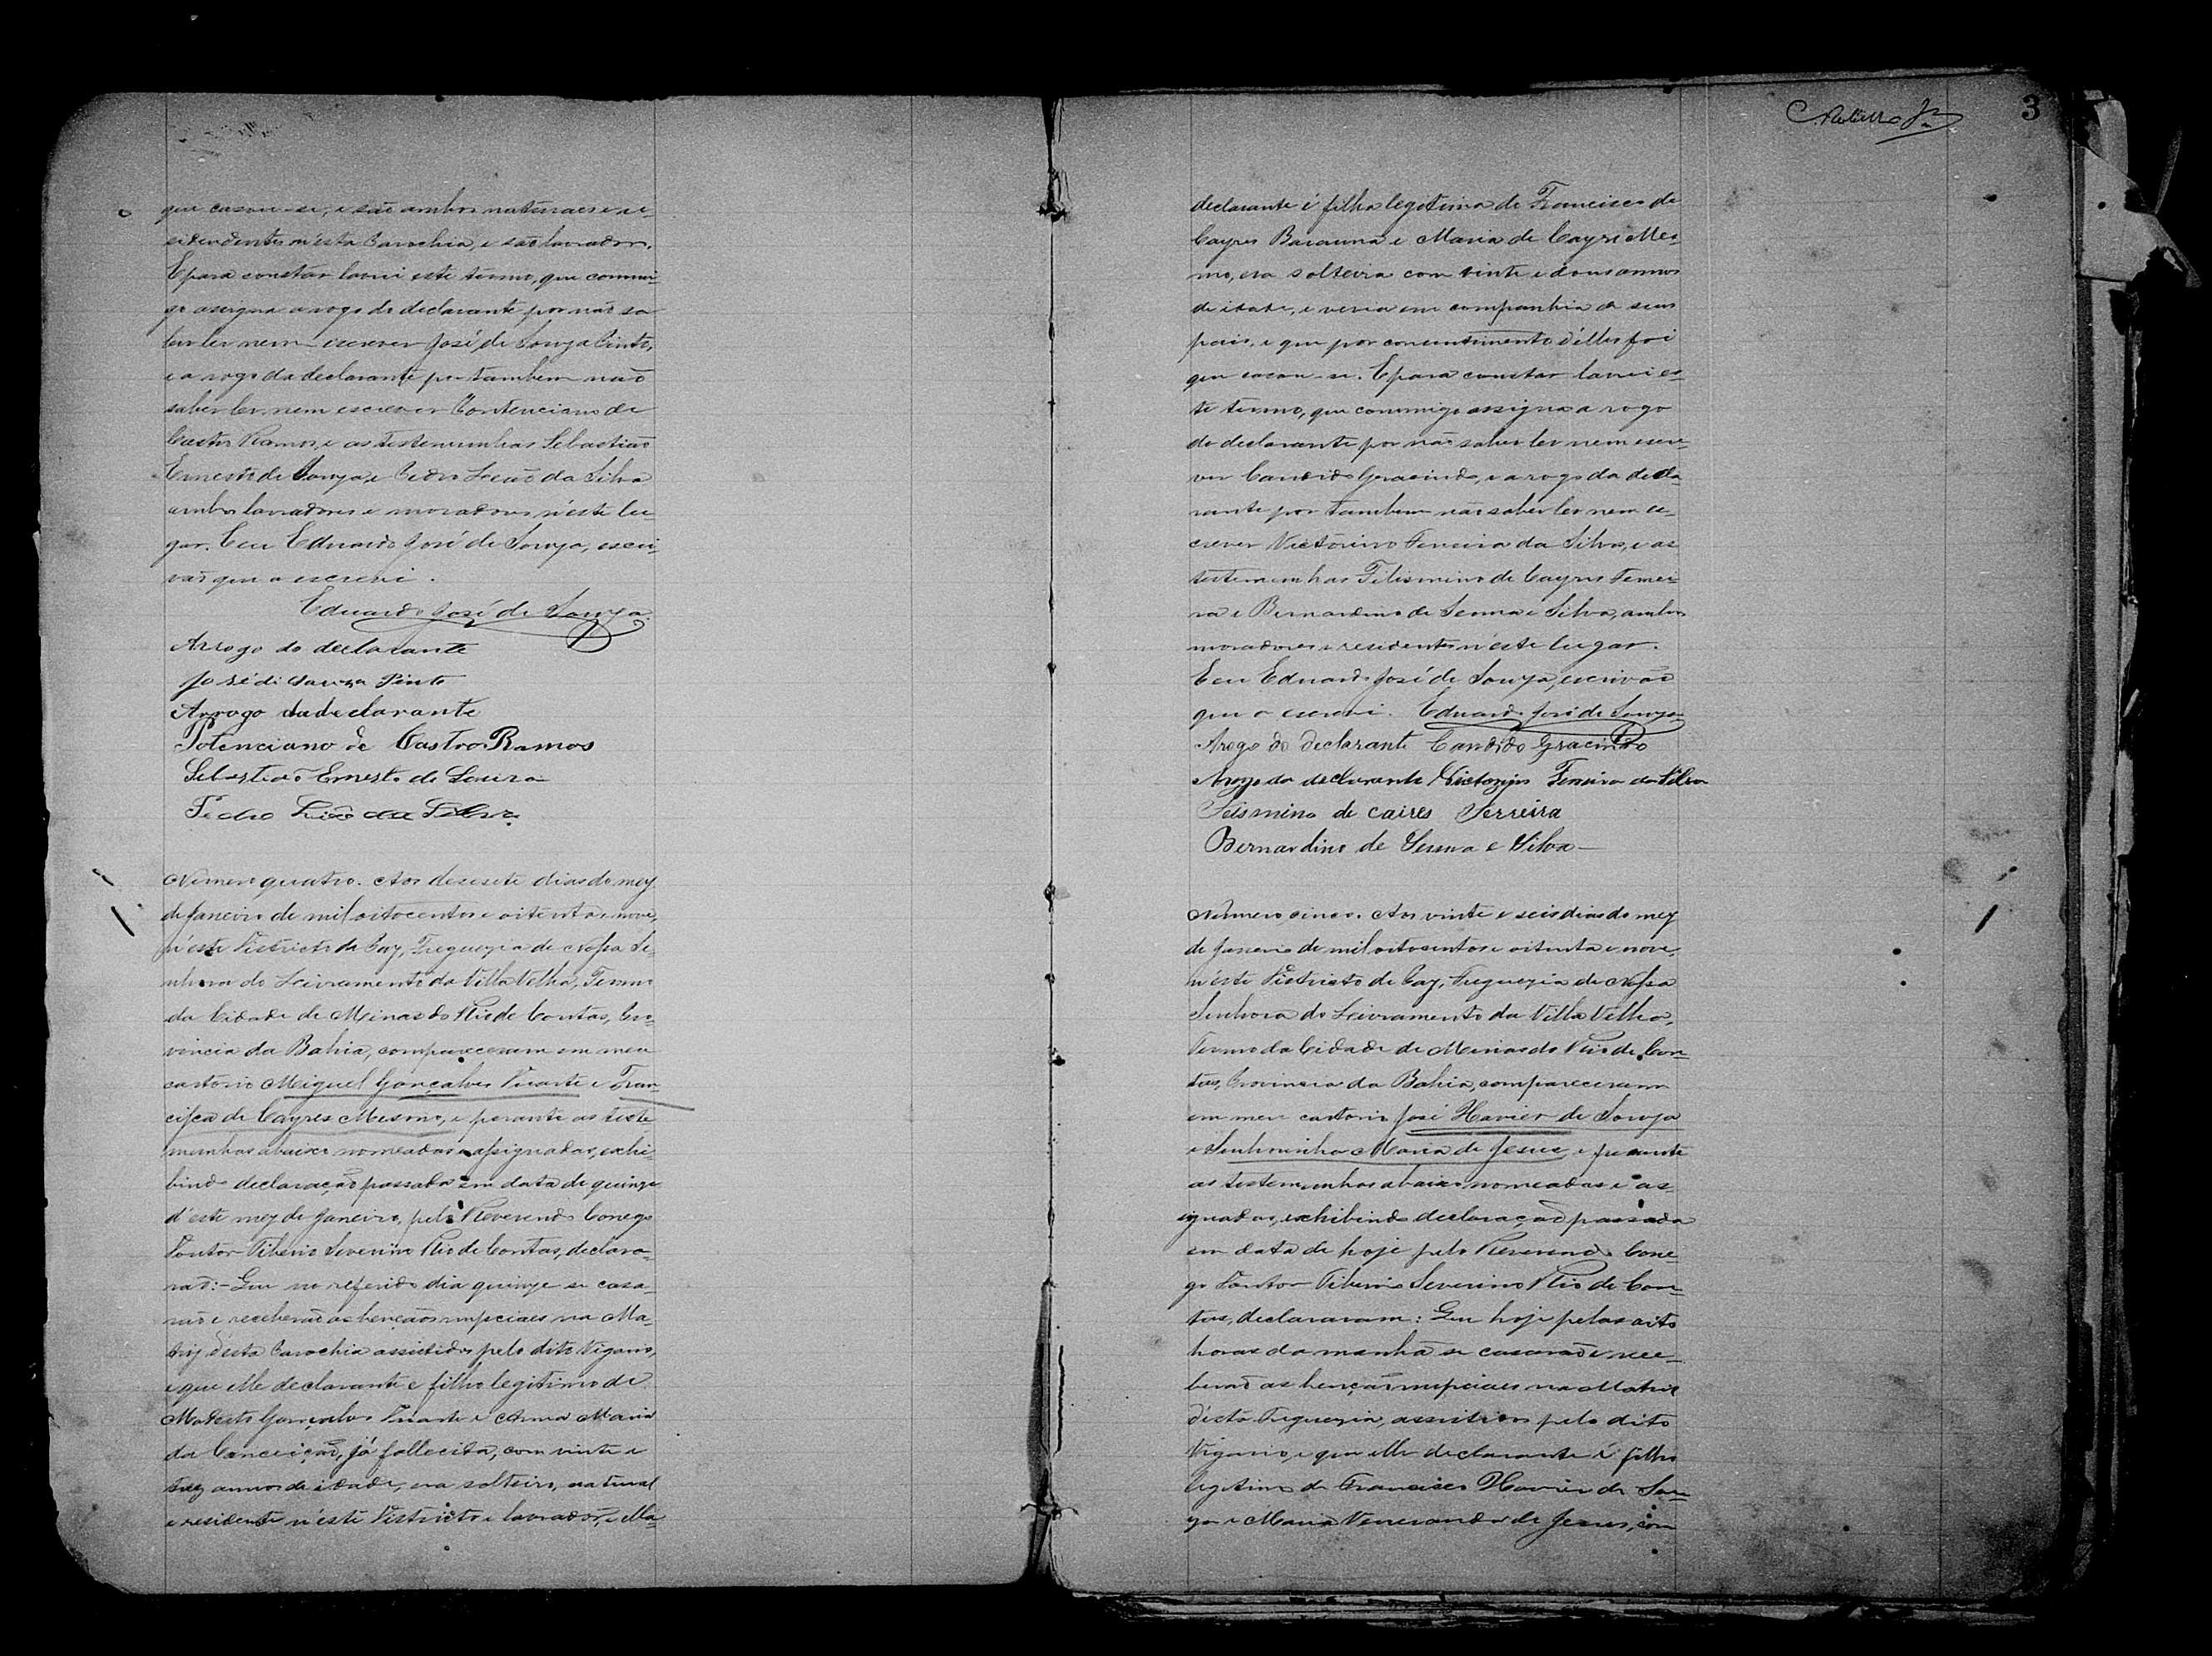 que casou-se, e são ambos naturaes e re-
sidendentes n'esta Parochia, e são lavradores.
E para constar lavrei este termo, que commi-
go assigna a rogo do declarante por não sa-
ber ler nem escrever José de Souza Pinto,
e a rogo da declarante por tambem não
saber ler nem escrever Potenciano de
Castro Ramos, e as testemunhas Sebastião
Ernesto de Souza, e Pedro Leão da Silva
ambos lavradores e moradores n'este lu-
gar. E eu Eduardo José de Souza, escri-
vão que o escrevi.
Eduardo José de Souza
Arrogo do declarante
José di Souza Pinto
Arrogo da declarante
Potenciano de Castro Ramos
Sebastião Ernesto de Souza
Pedro Leão da Silva
Numero quatro. Aos desesete dias do mez
de Janeiro de mil oitocentos e oitenta e nove,
n'este Districto da Paz, Freguezia de Nossa Se-
nhora do Livramento da Villa Velha, Termo
da Cidade de Minas do Rio de Contas, Pro-
vincia da Bahia, compareceram em meu
cartorio Miguel Gonçalves Duarte e Fran-
cisca de Cayres Mesmo, e perante as teste-
munhas abaixo nomeadas e assignadas, exhi-
bindo declaração passada em data de quinze
d'este mez de Janeiro, pelo Reverendo Conego
Doutor Tiberio Severino Rio de Contas, declara-
rão:- Que no referido dia quinze se casa-
rão e receberão as bençãos nupciaes na Ma-
triz d'esta Parochia assistidos pelo dito Vigario,
e que elle declarante e filho legitimo de
Modesto Gonçalves Duarte e Anna Maria
da Conceição, já fallecida, com vinte e
trez annos de idade, era solteiro, natural
e residente n'este Districto e lavrador, e ella
3
declarante é filha legitima de Francisco de
Cayres Barauna e Maria de Cayres Mes-
mo, era solteira com vinte e dous annos
de idade, e vevia em companhia de seus
pais, e que por concentimento d'elles foi
que casou-se. E para constar lavrei es-
te termo, que commigo assigna a rogo
do declarante por não saber ler nem escre-
ver Candido Gracindo, e a rogo da decla-
rante por tambem não saber ler nem es-
crever Victorino Ferreira da Silva, e as
testemunhas Filismino de Cayres Ferrei-
ra e Bernardino de Senna e Silva, ambos
moradores e residentes n'este lugar.
E eu Eduardo José de Souza, escrivão
que o escrevi. Eduardo José de Souza
Arogo do declarante Candido Gracindo
Arogo da declarante Victorino Ferreira da Silva
Felismino de Caires Ferreira
Bernardino de Senna e Silva
Numero cinco. Aos vinte e seis dias do mez
de Janeiro de mil oitocentos e oitenta e nove,
n'este Districto de Paz, Freguezia de Nossa
Senhora do Livramento da Villa Velha,
Termo da Cidade de Minas do Rio de Con-
tas, Provincia da Bahia, compareceram
em meu cartorio José Xavier de Souza
e Senhorinha Maria de Jesus, e perante
as testemunhas abaixo nomeadas e as-
signadas, exhibindo declaração passada
em data de hoje pelo Reverendo Cone-
go Doutor Tiberio Severino Rio de Con-
tas, declararam: Que hoje pelas oito
horas da manhã se casarão e rece-
berão as bençãos nupciaes na Matriz
d'esta Freguezia, assistidos pelo dito
Vigario, e que elle declarante é filho
legitimo de Francisco Xavier de Sou-
za e Maria Veneranda de Jesus, com